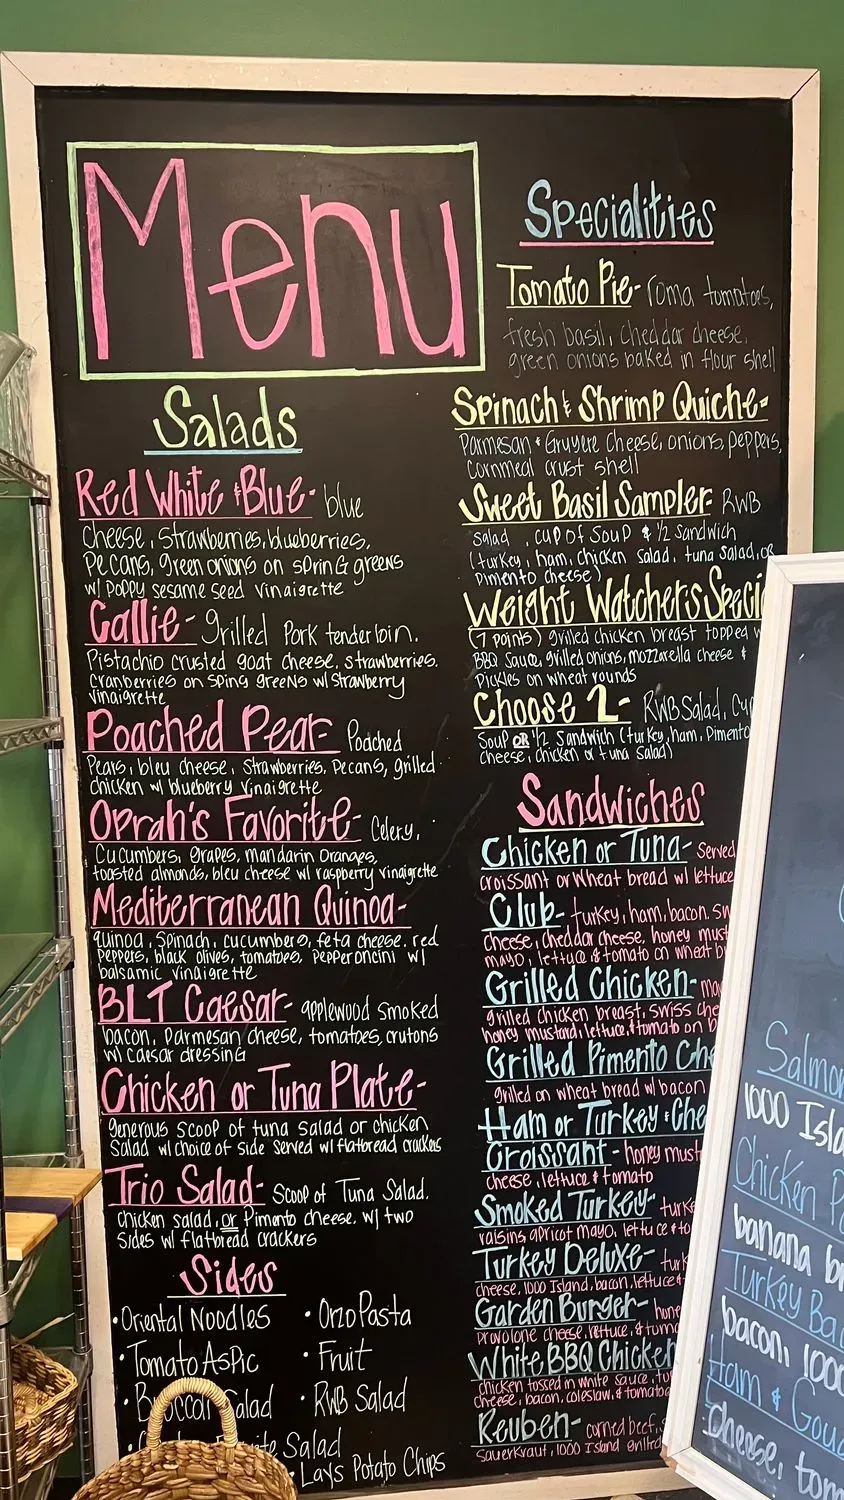 Menu
Salads
Red White & Blue- blue
cheese, strawberries, blueberries,
pecans, green onions on spring greens
w/ poppy sesame seed vinaigrette
Callie- grilled pork tenderloin,
Pistachio crusted goat cheese, strawberries,
cranberries on sping greens w/ strawberry
vinaigrette
Poached Pear- Poached
Pears, bleu cheese, strawberries, pecans, grilled
chicken w/ blueberry vinaigrette
Oprah's Favorite- Celery,
cucumbers, grapes, mandarin oranges,
toasted almonds, bleu cheese w/ raspberry vinaigrette
Mediterranean Quinoa-
quinoa, spinach, cucumbers, feta cheese, red
peppers, black olives, tomatoes, pepperoncini w/
balsamic vinaigrette
BLT Caesar- applewood smoked
bacon, parmesan cheese, tomatoes, crutons
w/ caesar dressing
Chicken or Tuna Plate-
generous scoop of tuna salad or chicken
salad w/ choice of side served w/ flatbread crackers
Trio Salad- Scoop of Tuna Salad,
chicken salad, or Pimento cheese, w/ two
sides w/ flatbread crackers
Sides
• Oriental Noodles
• Tomato Aspic
• Broccoli Salad
Salad
• Orzo Pasta
• Fruit
• RWB Salad
• Lays Potato Chips
Specialities
Tomato Pie- roma tomatoes,
fresh basil, cheddar cheese,
green onions baked in flour shell
Spinach & Shrimp Quiche-
Parmesan & Gruyere cheese, onions, peppers,
cornmeal crust shell
Sweet Basil Sampler RWB
salad, cup of soup & 1/2 sandwich
(turkey, ham, chicken salad, tuna salad, or
pimento cheese)
Weight Watchers Speci
(7 points) grilled chicken breast topped w
BBQ sauce, grilled onions, mozzarella cheese &
pickles on wheat rounds
Choose 2- RWB Salad, Cu
Soup OR 1/2 sandwich (turkey, ham, pimento
cheese, chicken or tuna salad)
Sandwiches
Chicken or Tuna- served
croissant or wheat bread w/ lettuce
Club- turkey, ham, bacon, sw
cheese, cheddar cheese, honey must
mayo, lettuce & tomato on wheat b
Grilled Chicken- ma
grilled chicken breast, swiss che
honey mustard, lettuce & tomato on b
Grilled Pimento Che
grilled on wheat bread w/ bacon
Ham or Turkey & Che
Croissant- honey must
cheese, lettuce & tomato
Smoked Turkey- turke
raisins apricot mayo, lettuce & to
Turkey Deluxe- turk
cheese, 1000 Island, bacon, lettuce &
Garden Burger- hone
provolone cheese, lettuce, & toma
White BBQ Chicken
chicken tossed in white sauce,
cheese, bacon, coleslaw, & tomatoe
Reuben- corned beef, s
sauerkraut, 1000 Island grilled
Salmo
1000 Isla
Chicken P
banana br
Turkey Ba
bacon, 1000
Ham & Goud
cheese, tom